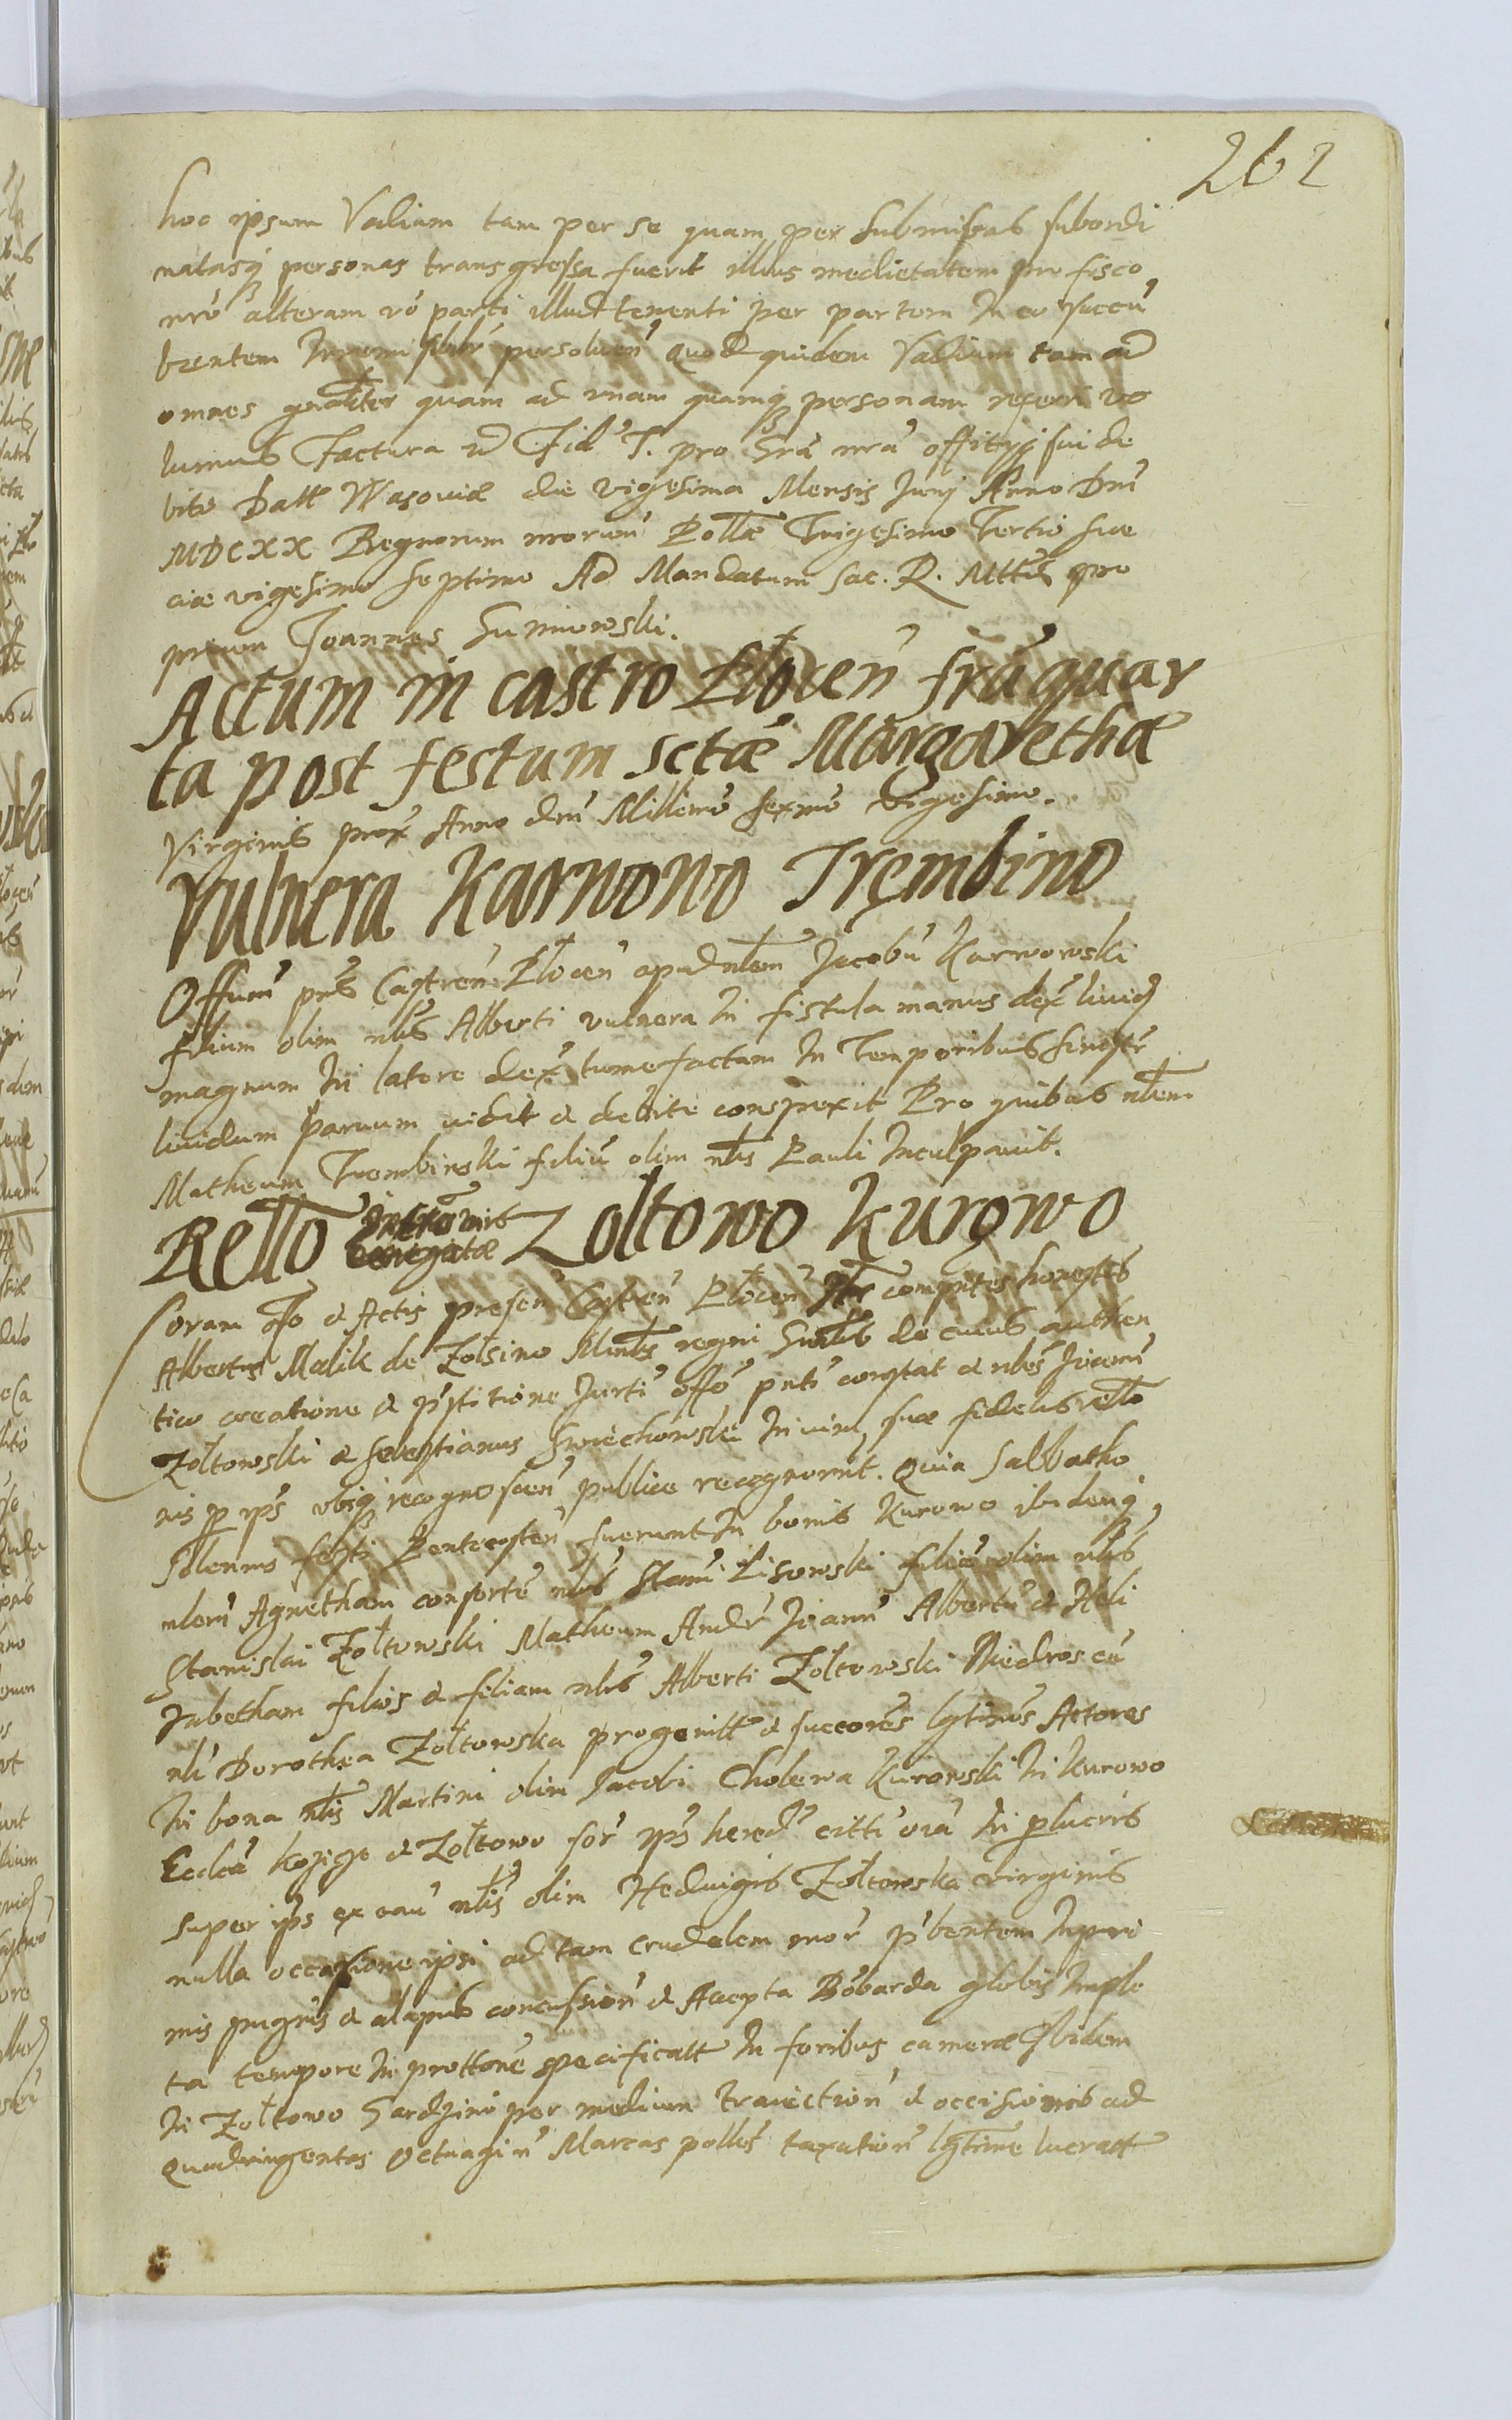 262
hoc ipsum Vadium tam per se quam per submissas subordi
natasq personas transgressa fuerit illius medietatem pro fisco
nro alteram vo parti illud tenenti per partem in eo succu
bentem persoluen Quod quidem Vadium tam ad
omnes gnaliter quam ad vnam quamq personam referri vo
lumus Factura Fid T. pro Gra nra offityj sui de
bito Datt Warsouiae die vigesima Mensis Junj Anno Dni
MDCXX Regnorum nrorum Pollae Trigesimo Tertio Sue
ciae vigesimo septimo Ad Mandatum Sac. R. Mttis pro
prium Joannes
Actum in castro Płocen fria quar
ta post festum sctae Margarethae
Virginis prox Anno dni Millemo sexmo vigesimo.
Vulnera Karwowo Trembino
Offium pns Castren Płocen apud nlem Jacobu Karwowski
filium olim nlis Alberti vulnera in fistula manus dex liuid
magnum in latere dex tumefactam in Temporibus sinistr
liuidum paruum vidit et debite conspexit Pro quibus nlem
Matheum Trembinski filiu olim nlis Pauli inculpauit.
Rello intromis
denegatae Zoltowo Kurowo
Coram Offo et Actis presen Castren Płocen comptes honestus
Albertus Malik de Zołsino Minlis regni Gnalis de cuius authen
tica creatione et iurti offo pnti constat et nles Joann
Zołtowski et Sebestianus in vim suae fidelis rello
nis p ips vbiq recognoscen publice recognorunt. Quia Sabbatho
Solenno festi Pentecosten fuerunt in bonis Kurowo ibidemq
nlem Agnetham consorte nlis Stani Lisowski filia olim nlis
Stanislai Zołtowski Matheum Andr Joann Albertu et Heli
zabetham filios et filiam nlis Alberti Zołtowski Niedros cu
nli Dorothea Zołtowska progenitt et succores lgtimos Actores
in bona nlis Martini olim Jacobi Cholewa Kurowski in Kurowo
Ecclia et Zołtowo sor ips hered in plucris
super ips ex cau nlis olim Hedvigis Zołtowska virginis
nulla occasione ipsi ad tam crudelem mor pbentem in pri
mis pugnis et alapis concussion et Accepta Bobarda globis imple
ta tempore in prottone specificatt in foribus camerae ibidem
in Zołtowo per medium traiection et occisionis ad
Quadringentas octuagin Marcas polles taxation lgtime lucratt